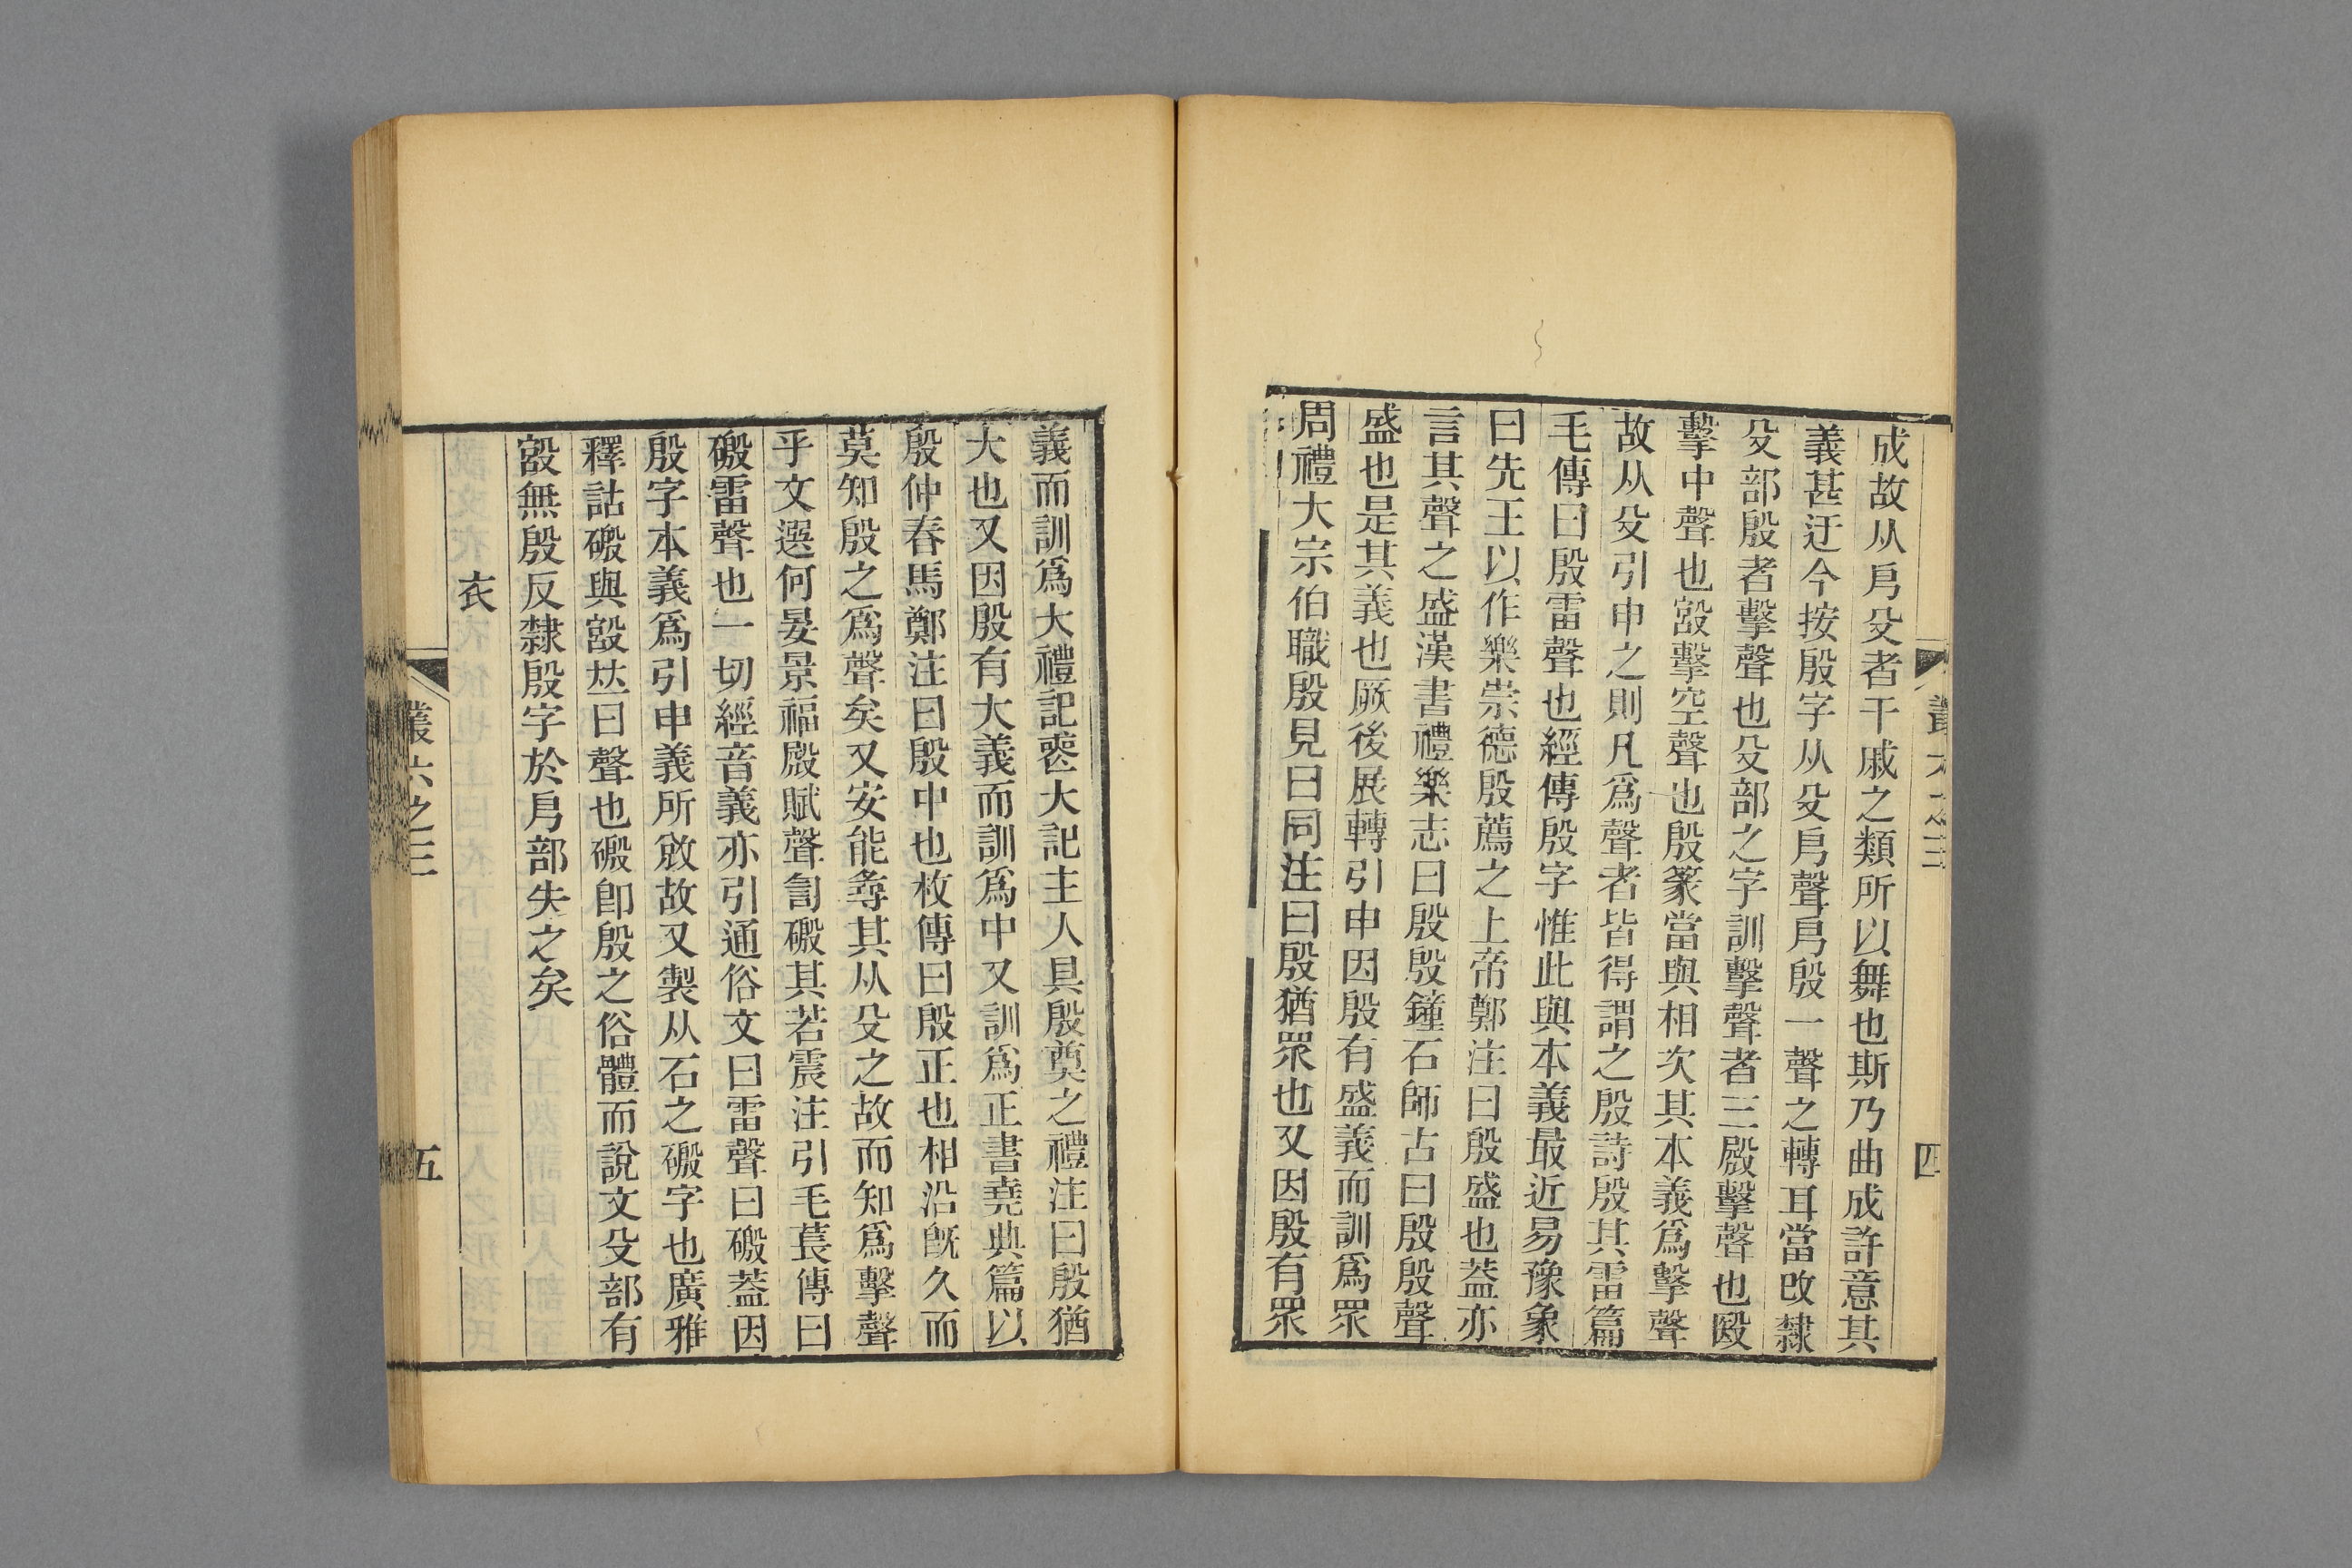 成故从㐆殳者干戚之類所以舞也斯乃曲成許意其
義甚迂今按殷字从殳㐆聲㐆殷一聲之轉耳當改隸
殳部殷者擊聲也殳部之字訓擊聲者三㱿擊聲也毆
擊中聲也㱿擊空聲也殷篆當與相次其本義爲擊聲
故从殳引申之則凡爲聲者皆得謂之殷詩殷其雷篇
毛傳曰殷雷聲也經傳殷字惟此與本義最近易豫象
曰先王以作樂崇德殷薦之上帝鄭注曰殷盛也葢亦
言其聲之盛漢書禮樂志曰殷殷鐘石師古曰殷殷聲
盛也是其義也厥後展轉引申因殷有盛義而訓爲眾
周禮大宗伯職殷見曰同注曰殷猶眾也又因殷有眾
叢六之三
四
義而訓爲大禮記喪大記主人具殷奠之禮注曰殷猶
大也又因殷有大義而訓爲中又訓爲正書堯典篇以
殷仲春馬鄭注曰殷中也枚傳曰殷正也相沿既久而
莫知殷之爲聲矣又安能尋其从殳之故而知爲擊聲
乎文選何晏景福殿賦聲訇磤其若震注引毛萇傳曰
磤雷聲也一切經音義亦引通俗文曰雷聲曰磤葢因
殷字本義爲引申義所敚故又製从石之磤字也廣雅
釋詁磤與㱿竝曰聲也磤卽殷之俗體而說文殳部有
㱿無殷反隸殷字於㐆部失之矣
衣
叢六之三
五